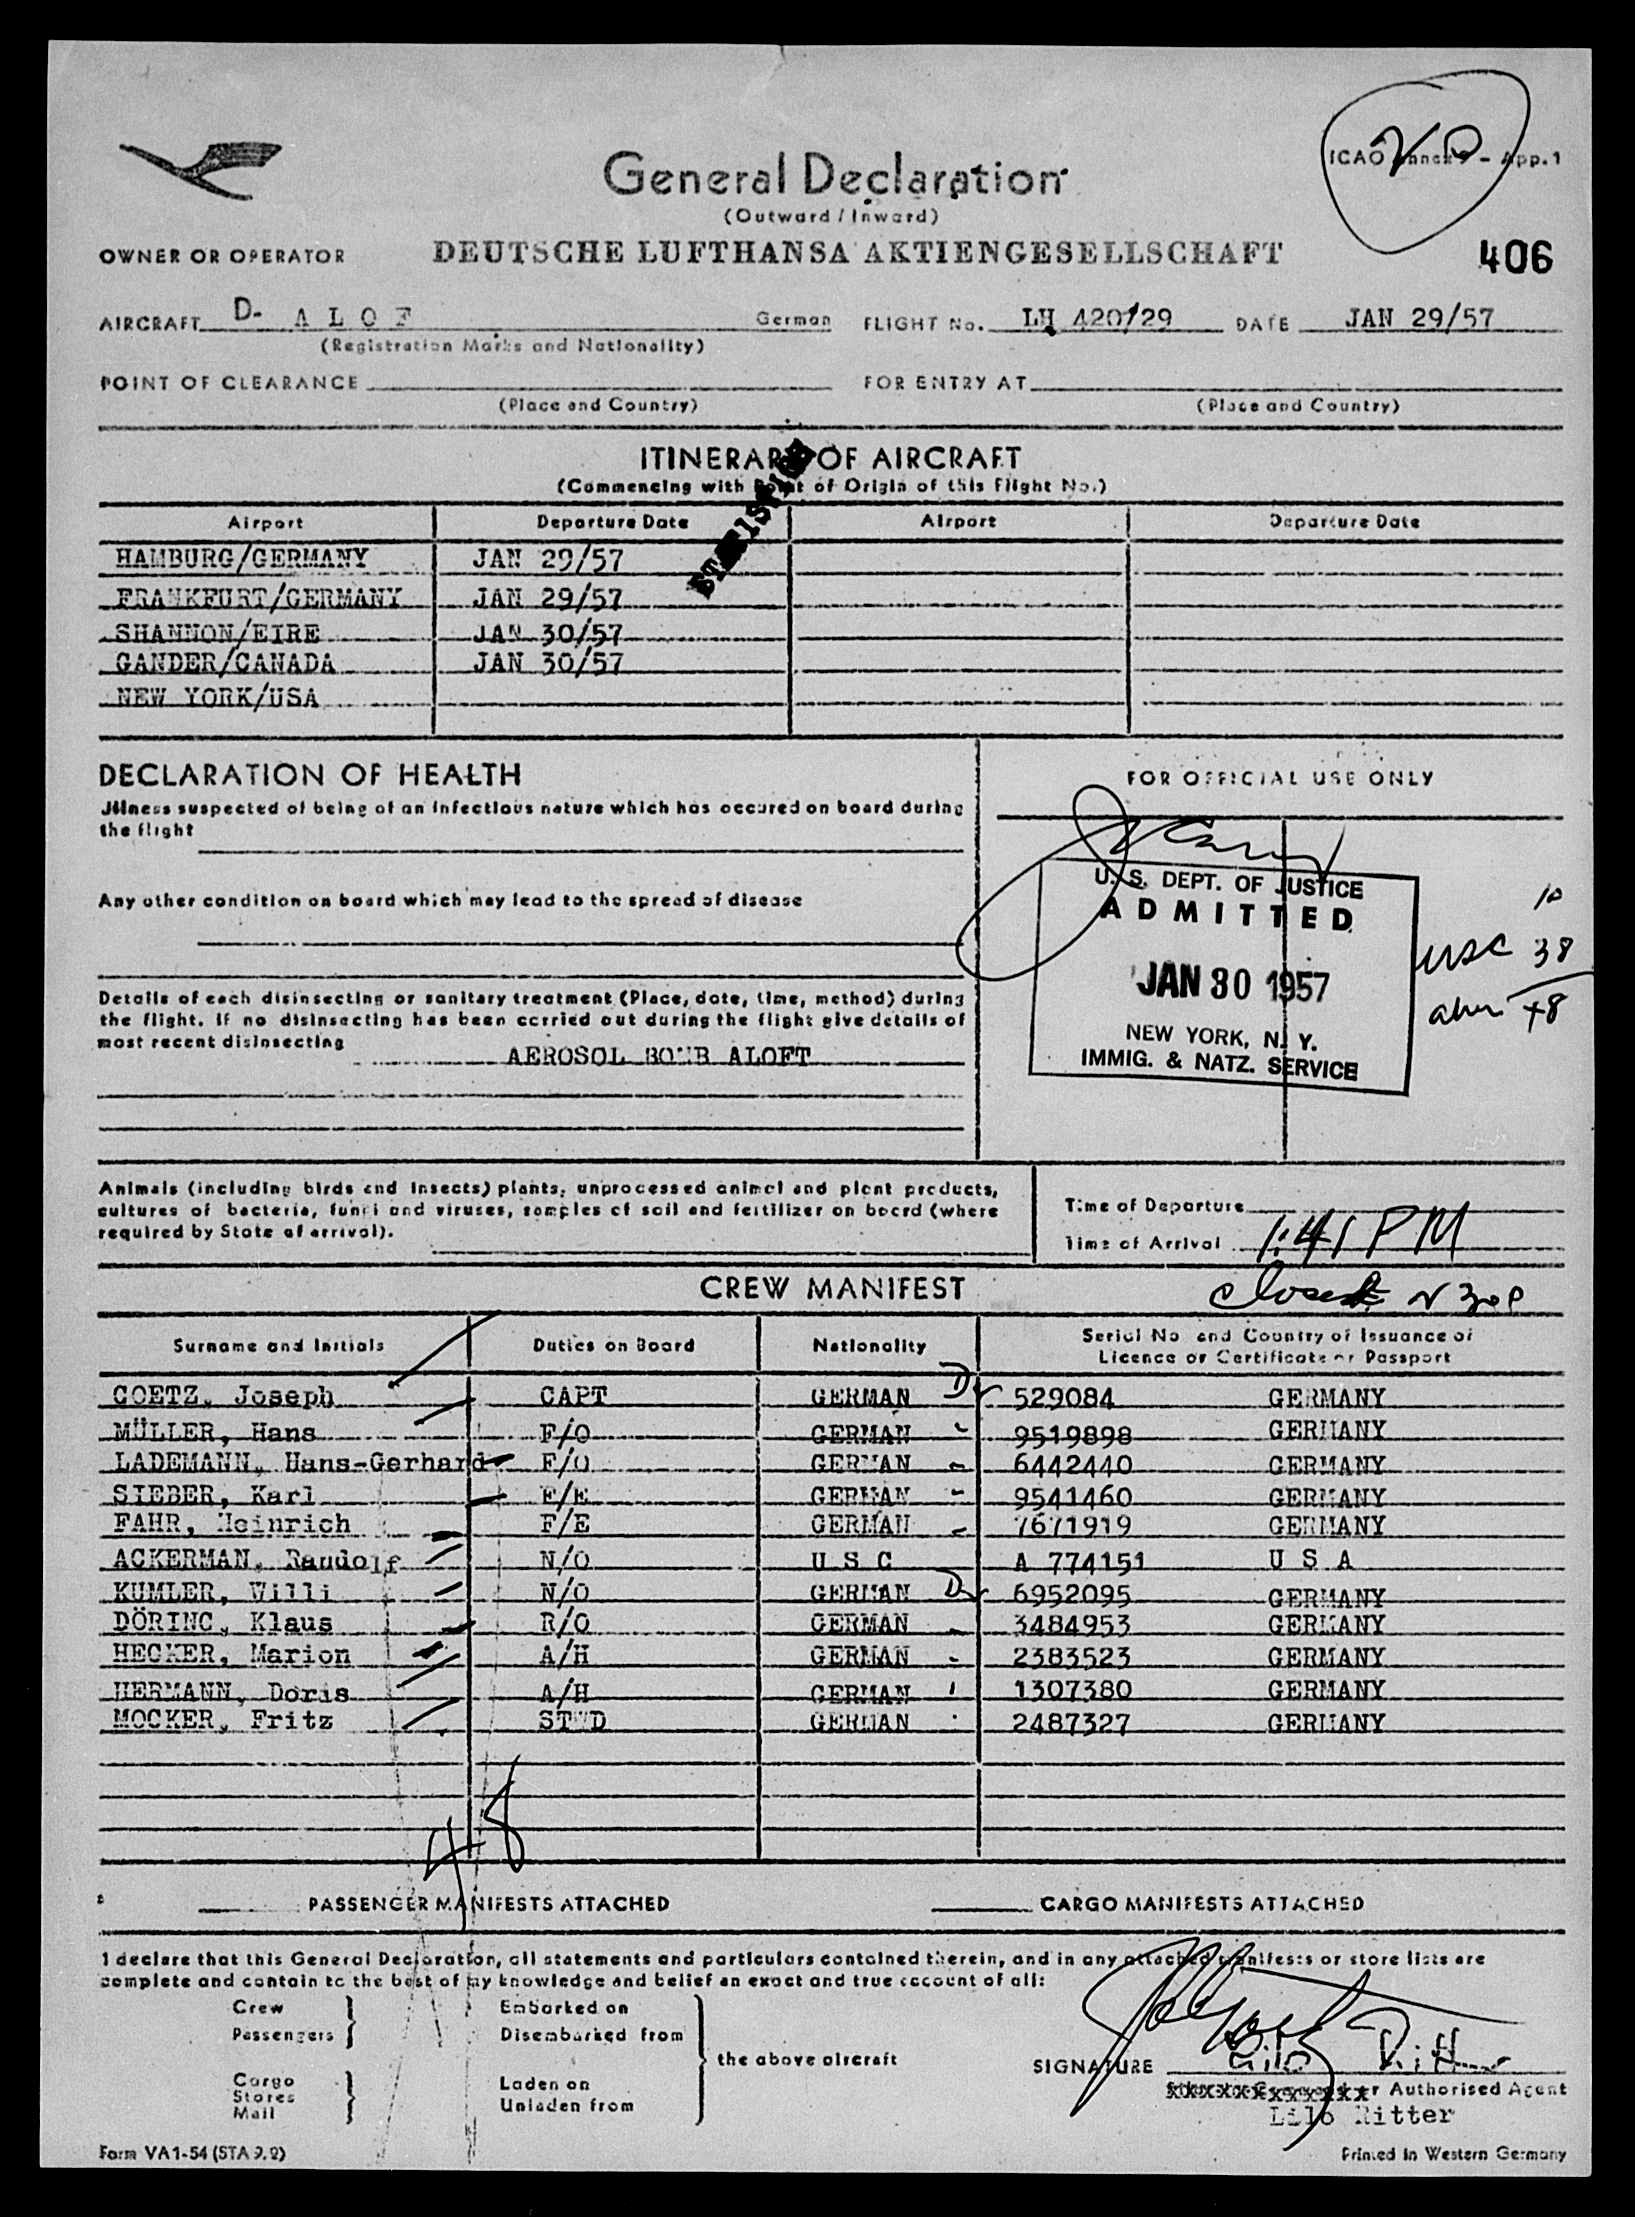 ICAO Annex 9 - App. 1
General Declaration
(Outward / Inward)
OWNER OR OPERATOR DEUTSCHE LUFTHANSA AKTIENGESELLSCHAFT 406
AIRCRAFT D- A L O F German FLIGHT No. LH 420/29 DATE JAN 29/57
(Registration Marks and Nationality)
POINT OF CLEARANCE FOR ENTRY AT
(Place and Country) (Place and Country)
ITINERARY OF AIRCRAFT
(Commencing with Point of Origin of this Flight No.)
Airport Departure Date Airport Departure Date
HAMBURG/GERMANY JAN 29/57
FRANKFURT/GERMANY JAN 29/57
SHANNON/EIRE JAN 30/57
GANDER/CANADA JAN 30/57
NEW YORK/USA
DECLARATION OF HEALTH
Jllness suspected of being of an infectious nature which has occured on board during
the flight
Any other condition on board which may lead to the spread of disease
Details of each disinsecting or sanitary treatment (Place, date, time, method) during
the flight. If no disinsecting has been carried out during the flight give details of
most recent disinsecting
AEROSOL BOMB ALOFT
FOR OFFICIAL USE ONLY
U. S. DEPT. OF JUSTICE
ADMITTED
JAN 30 1957
NEW YORK, N. Y.
IMMIG. & NATZ. SERVICE
10
USC 38
48
Animals (including birds and insects) plants, unprocessed animal and plant products,
cultures of bacteria, fungi and viruses, samples of soil and fertilizer on board (where
required by State of arrival).
Time of Departure
Time of Arrival 1:41 PM
CREW MANIFEST
Closed 230P
Surname and Initials Duties on Board Nationality Serial No and Country of Issuance of
Licence or Certificate or Passport
GOETZ, Joseph CAPT GERMAN 529084 GERMANY
MÜLLER, Hans F/O GERMAN 9519898 GERMANY
LADEMANN, Hans-Gerhard F/O GERMAN 6442440 GERMANY
SIEBER, Karl F/E GERMAN 9541460 GERMANY
FAHR, Heinrich F/E GERMAN 7671919 GERMANY
ACKERMAN, Randolf N/O U S C A 774151 U S A
KUMLER, Willi N/O GERMAN 6952095 GERMANY
DÖRING, Klaus R/O GERMAN 3484953 GERMANY
HECKER, Marion A/H GERMAN 2383523 GERMANY
HERMANN, Doris A/H GERMAN 1307380 GERMANY
MOCKER, Fritz STWD GERMAN 2487327 GERMANY
48
PASSENGER MANIFESTS ATTACHED CARGO MANIFESTS ATTACHED
I declare that this General Declaration, all statements and particulars contained therein, and in any attached manifests or store lists are
complete and contain to the best of my knowledge and belief an exact and true account of all:
Crew Embarked on
Passengers Disembarked from
the above aircraft
Cargo Laden on
Stores
Mail Unladen from
SIGNATURE Lilo Ritter
or Authorised Agent
Lilo Ritter
Form VA1-54 (STA 9.2) Printed in Western Germany